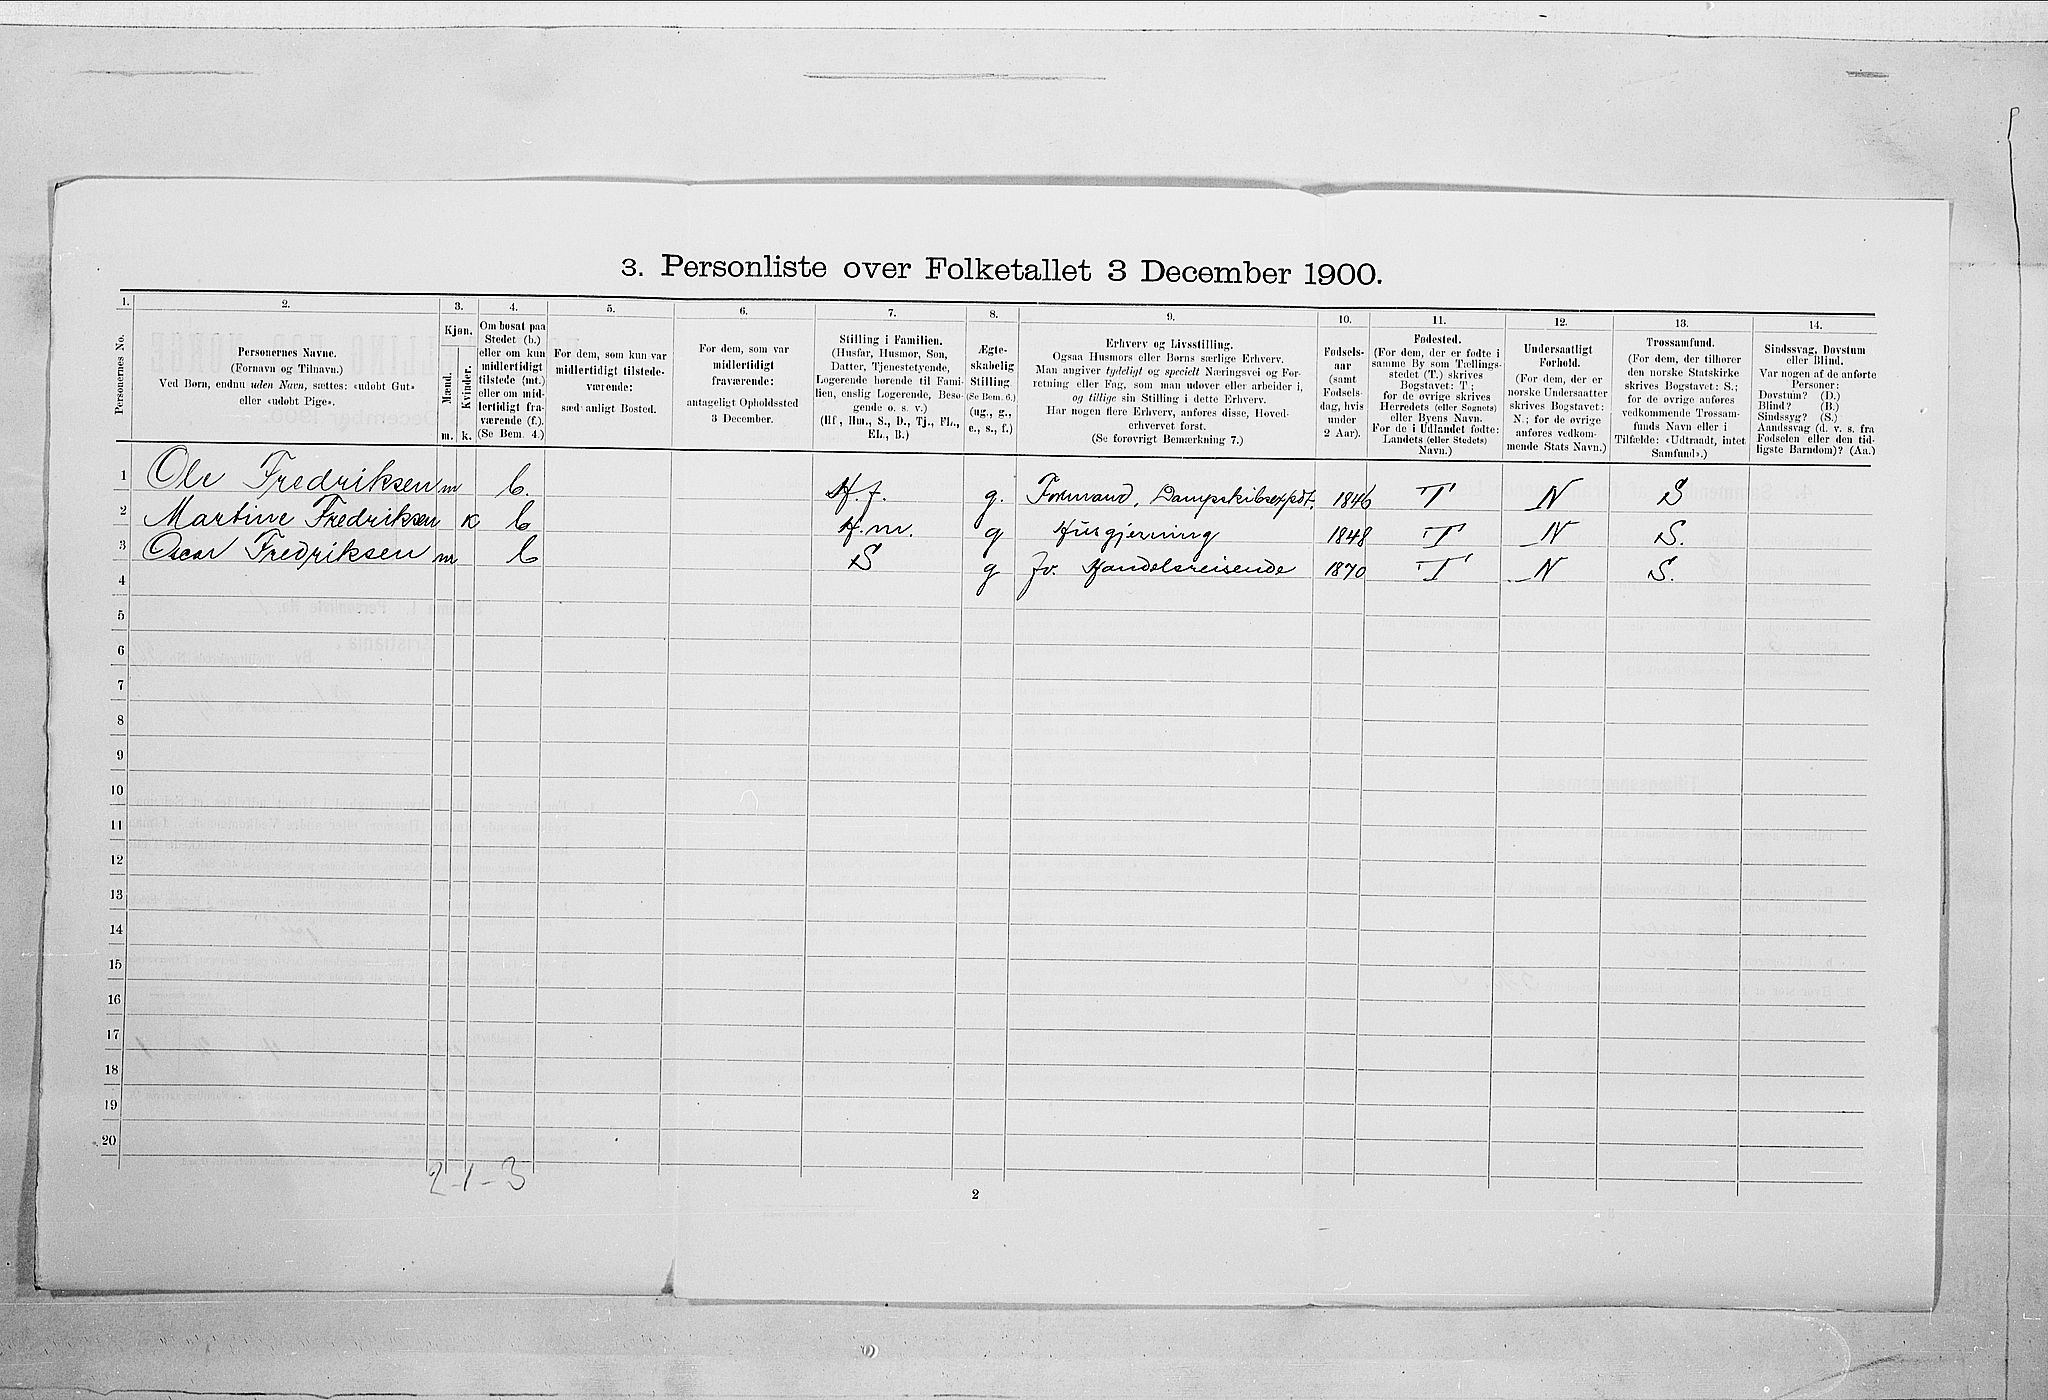 3. Personliste over Folketallet 3 December 1900.
1. 2. 3. 4. 5. 6. 7. 8. 9. 10. 11. 12. 13. 14.
Personernes No.
Personernes Navne.
(Fornavn og Tilnavn.)
Ved Børn, endnu uden Navn, sættes: «udøbt Gut»
eller «udøbt Pige».
Kjøn.
Mænd.
Kvinder.
m. k.
Om bosat paa
Stedet (b.)
eller om kun
midlertidigt
tilstede (mt.)
eller om mid-
lertidigt fra-
værende (f.).
(Se Bem. 4.)
For dem, som kun var
midlertidigt tilstede-
værende:
sædvanligt Bosted.
For dem, som var
midlertidigt
fraværende:
antageligt Opholdssted
3 December.
Stilling i Familien.
(Husfar, Husmor, Søn,
Datter, Tjenestetyende,
Logerende hørende til Fami-
lien, enslig Logerende, Besø-
gende o. s. v.)
(Hf., Hm., S., D., Tj., FL.,
EL., B.)
Ægte-
skabelig
Stilling
(Se Bem. 6.)
(ug., g.,
e., s., f.)
Erhverv og Livsstilling.
Ogsaa Husmors eller Børns særlige Erhverv.
Man angiver tydeligt og specielt Næringsvei og For-
retning eller Fag, som man udøver eller arbeider i,
og tillige sin Stilling i dette Erhverv.
Har nogen flere Erhverv, anføres disse, Hoved-
erhvervet først.
(Se forøvrigt Bemærkning 7.)
Fødsels-
aar
(samt
Fødsels-
dag, hvis
under
2 Aar).
Fødested.
(For dem, der er fødte i
samme By som Tællings-
stedet (T.) skrives
Bogstavet: T;
for de øvrige skrives
Herredets (eller Sognets)
eller Byens Navn.
For de i Udlandet fødte:
Landets (eller Stedets)
Navn.)
Undersaatligt
Forhold.
(For dem, der er
norske Undersaatter
skrives Bogstavet:
N.; for de øvrige
anføres vedkom-
mende Stats Navn.)
Trossamfund.
(For dem, der tilhører
den norske Statskirke
skrives Bogstavet: S.;
for de øvrige anføres
vedkommende Trossam-
funds Navn eller i
Tilfælde: «Udtraadt, intet
Samfund».)
Sindssvag, Døvstum
eller Blind.
Var nogen af de anførte
Personer:
Døvstum? (D.)
Blind? (B.)
Sindssyg? (S.)
Aandssvag (d. v. s. fra
Fødselen eller den tid-
ligste Barndom)? (Aa.)
1 Ole Fredriksen m b. H.f. g. Formand, Dampskibsexpdt. 1846 T N S
2 Martine Fredriksen k b H.m. g Husgjerning 1848 T N S.
3 Oscar Fredriksen m b S g Fv. Handelsreisende 1870 T N S.
4
5
6
7
8
9
10
11
12
13
14
15
16
17
18
19
20
2-1-3
2